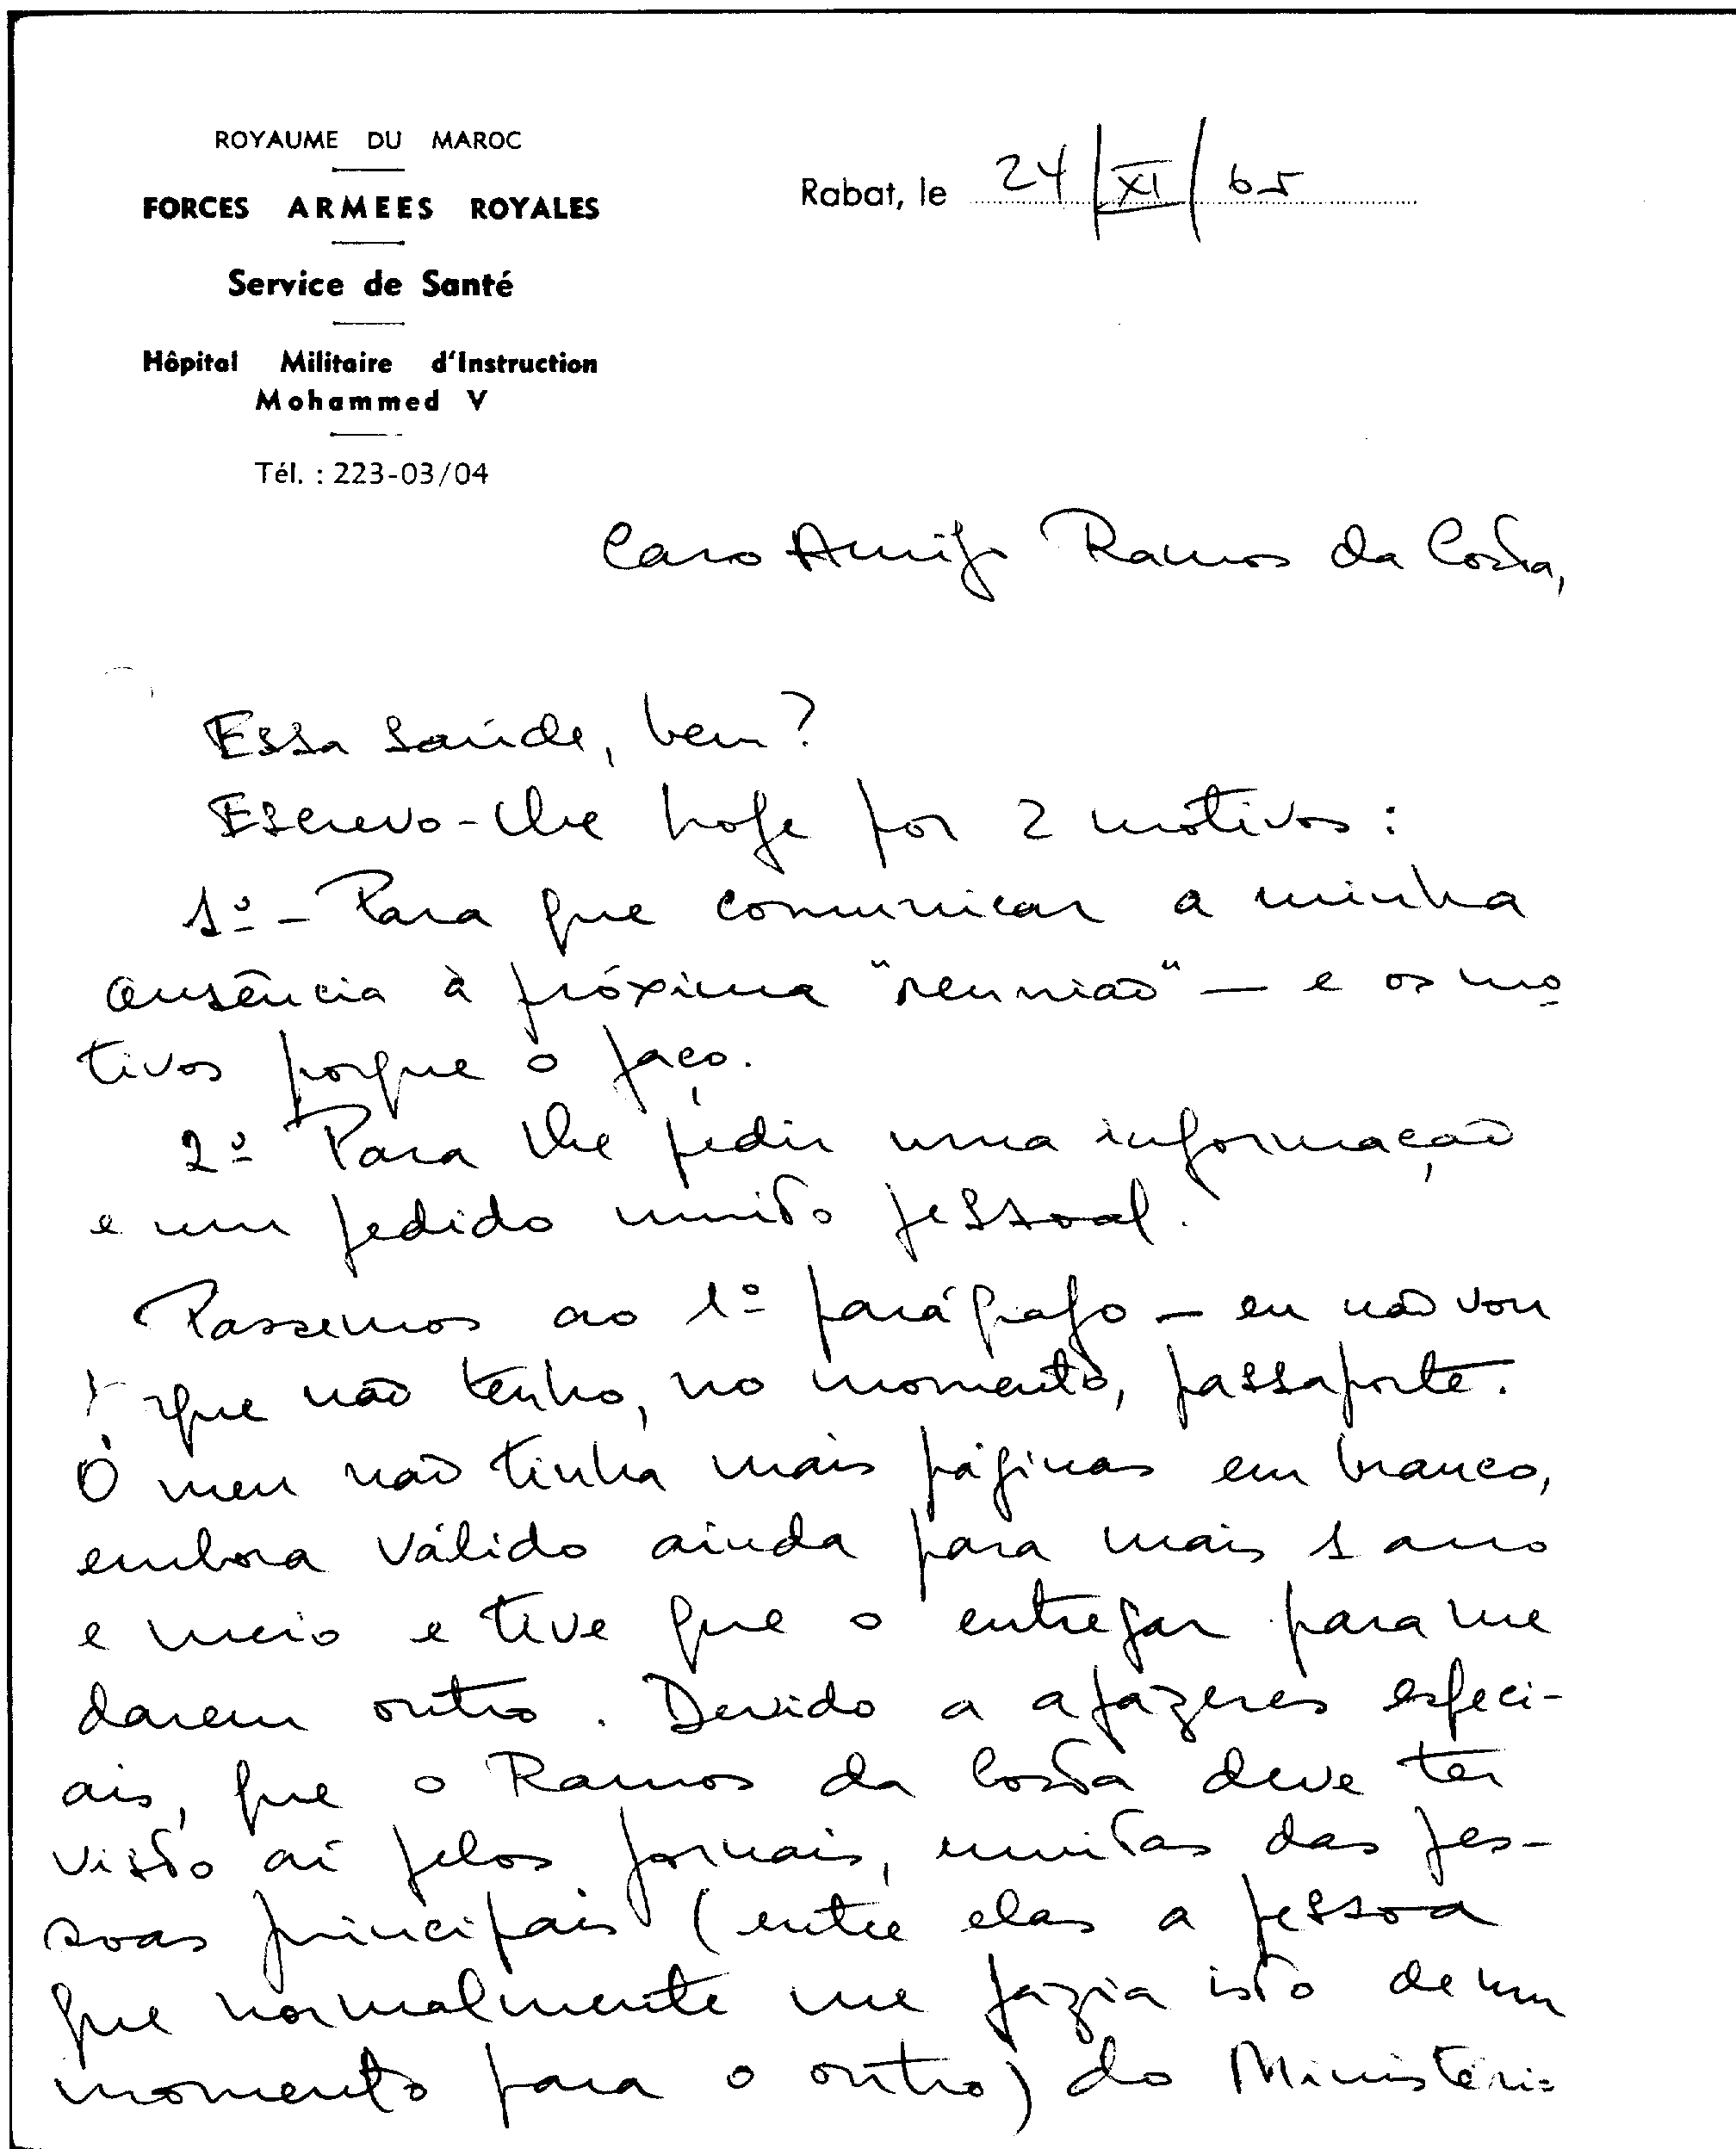 ROYAUME DU MAROC
FORCES ARMEES ROYALES
Service de Santé
Hôpital Militaire d'Instruction
Mohammed V
Tél. : 223-03/04
Rabat, le 24/XI/65
Caro Amigo Ramos da Costa,
Essa saúde, bem?
Escrevo-lhe hoje por 2 motivos:
1º - Para que comunicar a minha
ausência à próxima "reunião" — e os mo
tivos porque o faço.
2º Para lhe pedir uma informação
e um pedido muito pessoal.
Passemos ao 1º parágrafo — eu não vou
que não tenho, no momento, passaporte.
O meu não tinha mais páginas em branco,
embora válido ainda para mais 1 ano
e meio e tive que o entregar para me
darem outro. Devido a afazeres especi-
ais, que o Ramos da Costa deve ter
visto aí pelos jornais, muitas das pes-
soas principais (entre elas a pessoa
que normalmente me fazia isto de um
momento para o outro) do Ministéri=